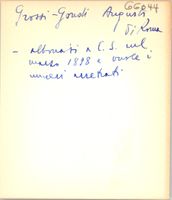 Grossi-Gondi Augusto
GG044
di Roma
- abbonati a C.S. nel
marzo 1898 e vuole i
numeri arretrati